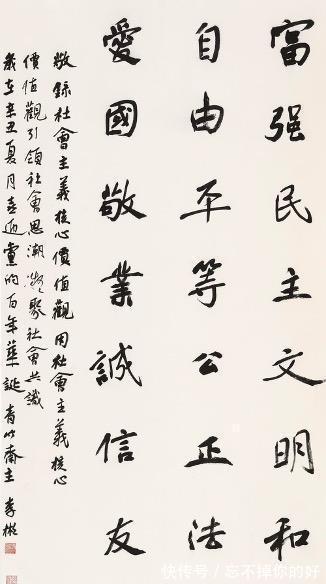 富强民主文明和
自由平等公正法
愛國敬業誠信友
敬錄社會主義核心價值觀用社會主義核心
價值觀引領社會思潮凝聚社會共識
歲在辛丑夏月喜迎黨的百年華誕 青竹齋主 李
快传号/忘不掉你的好